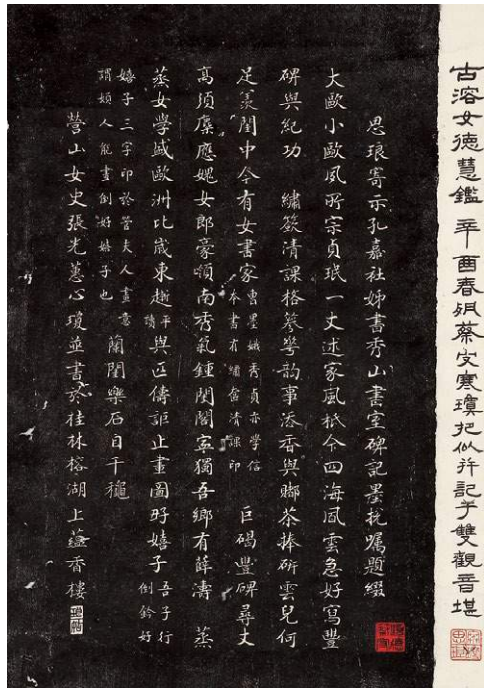 古溶女德慧鑑 辛酉春朔蔡守寒瓊把似并記于雙觀音堪
思琅寄示孔嘉社姊書秀山書室碑記墨拓囑題綴
大歐小歐風所宗貞珉一丈述家風祇今四海風雲急好寫豐
碑與紀功 繡篋清課格簪華韵事添香與腳茶捧硏雲兒何
足羨閨中今有女書家 曹墨娥秀貞亦學信本書有繡餘清課印 巨碣豐碑尋丈
高須麋應媿女郎豪嶺南秀氣鍾閨閣 獨吾鄉有薛濤 蒸
蒸女學盛歐洲比歲東趟平讀與匹儔詎止畫圖呼嬉子 吾子行倒鈐好
嬉子三字印於管夫人畫意謂婦人能畫倒好嬉子也 蘭閨樂石自千穐
營山女史張光蕙心瓊並書於桂林榕湖上蘊香樓